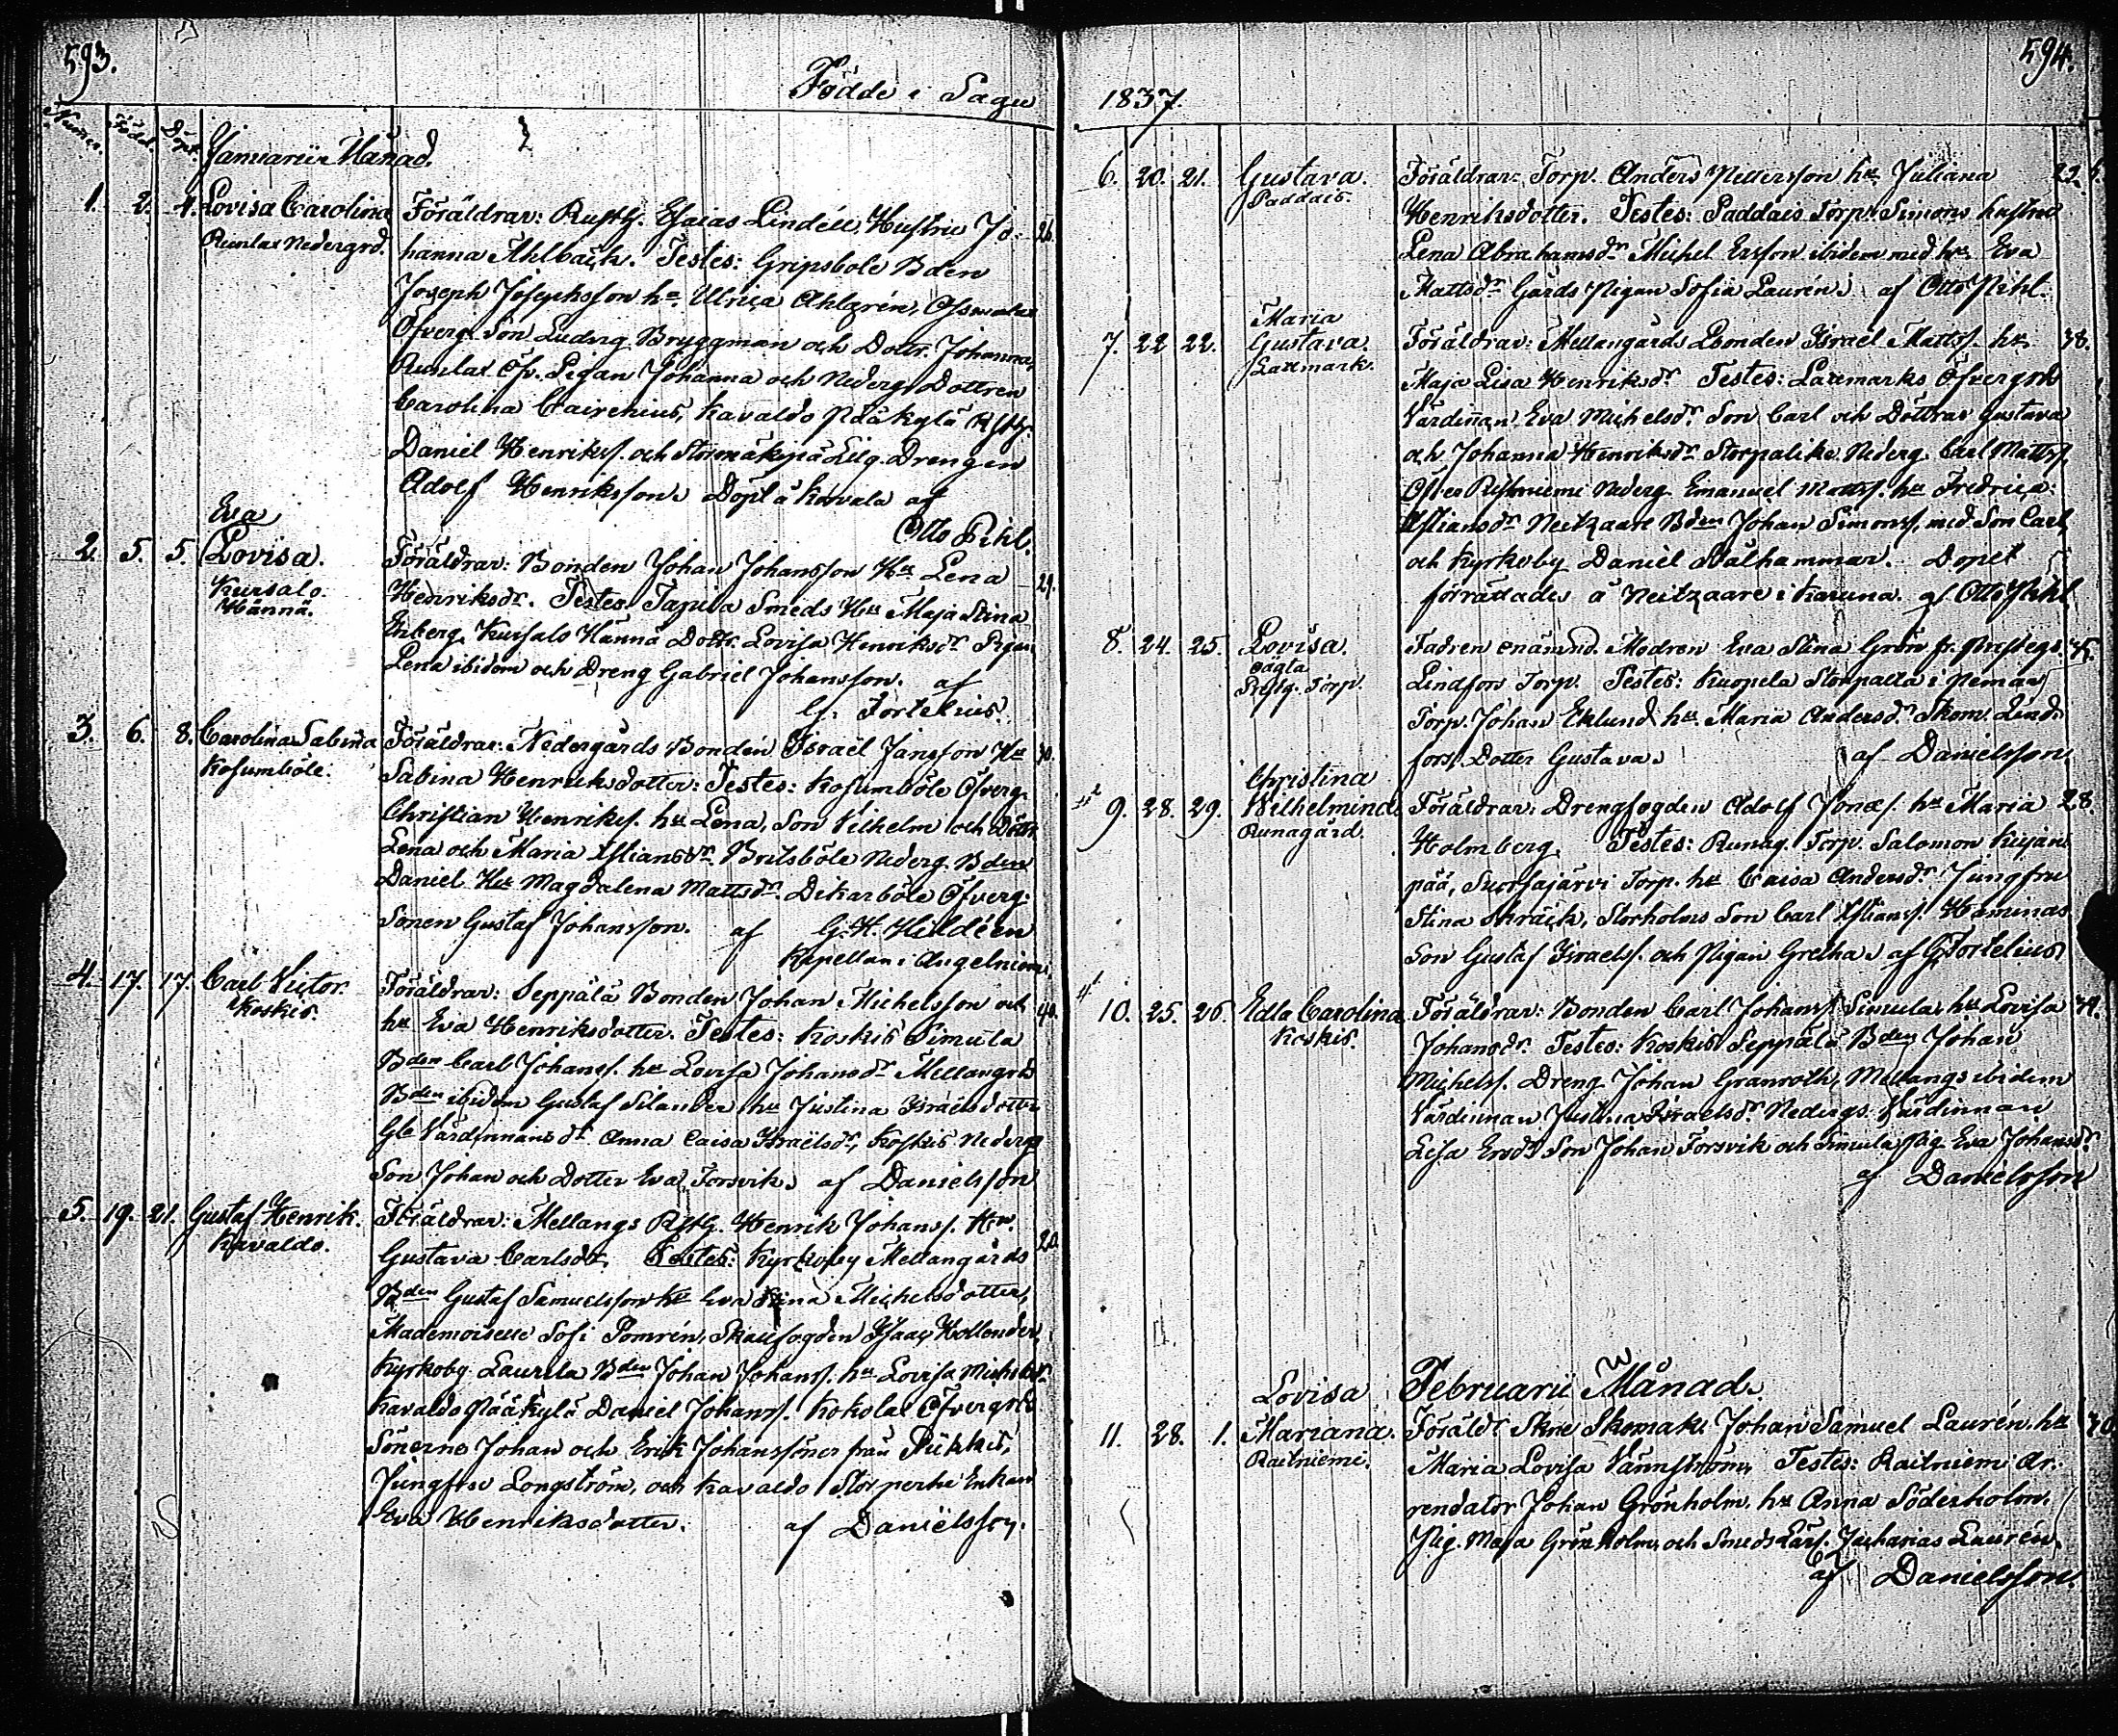 593.
Födde i Sagu
Numer. Född. Döpt.
Januarii Månad.
1. 2. 4. Lovisa Carolina Föräldrar: Rusth. Esaias Lindéll, Hustru Jo- 26.
Runlax Nedergrd. hanna Ahlbäck. Testes: Gripsböle Bden
Joseph Josephsson hu Ulrica Ahlgrén,
Öfverg. Son Ludvig Bryggman och Dottr. Johanna,
Runlax Öfv. Pigan Johanna och Nederg. Dottren
Carolina Cairenius, Kavaldo Pääkylä Rsth.
Daniel Henrikss. och Stormäkipä Lilg. Drengen
Adolf Henriksson. Döpt å Kavala af
Otto Pihl.
Eva
2. 5. 5. Lovisa. Föräldrar: Bonden Johan Johansson Hu Lena 29.
Kursalo Hännä. Henriksdr. Testes: Tapila Smeds Hu Maja Stina
Enberg, Kursalo Hännä Dottr. Lovisa Henriksdr Pigan
Lena ibidem och Dreng Gabriel Johansson. af
G. Fortelius.
3. 6. 8. Carolina Sabina Föräldrar: Nedergårds Bonden Israël Jansson Hu
Kosumböle. Sabina Henriksdotter: Testes: Kosumböle Öfverg.
Christian Henrikss. hu Lena, Son Vilhelm och Döttr
Lena och Maria Xstiansdr. Britsböle Nederg. Bden
Daniel Hu Magdalena Mattsdr. Dikarböle Öfverg.
Sonen Gustaf Johansson. af G. H. Heldéen
Kapellan i Angelniemi.
4. 17. 17. Carl Victor. Föräldrar: Seppälä Bonden Johan Michelsson och 40.
Koskis. hu Eva Henriksdotter. Testes: Koskis Simula
Bden Carl Johanss. hu Lovisa Johansdr Mellangrds
Bden ibidem Gustaf Silander hu Justina Israelsdotter
Gle Värdinnans dr Anna Caisa Israëlsdr, Koskis Nederg
Son Johan och Dotter Eva Forsvik. af Danielsson
5. 19. 21. Gustaf Henrik. Föräldrar: Mellangs Rsth. Henrik Johanss. Hu. 20.
Kavaldo. Gustava Carlsdr. Testes: Kyrkoby Mellangårds
Bden Gustaf Samuelsson hu Eva Stina Michelsdotter,
Mademoiselle Sofi Pomrén, Skallfogden Isaac Hollender,
Kyrkoby Laurila Bden Johan Johanss. hu Lovisa Michelsdr.
Kavaldo Pääkylä Daniel Johanss. Kokola Öfvergrds
Sönerne Johan och Erik Johanssöner från Pikkis,
Jungfru Longström, och Kavaldo Storperhe Enkan
Eva Henriksdotter. af Daniëlsson.
594.
1837.
6. 20. 21. Gustava. Föräldrar: Torp. Anders Pettersson hu Juliana 22.
Paddais. Henriksdotter. Testes: Paddais Torp. Simons hustru
Lena Abrahamsdr Michel Ersson ibidem med hu Eva
Mattsdr Gårds Pigan Sofia Laurén. af Otto Pihl.
Maria
7. 22 22. Gustava. Föräldrar: Mellangårds Bonden Israël Mattss. hu 38.
Laxmark. Maja Lisa Henriksdr Testes: Laxmarks Öfvergrds
Värdinnan Eva Michelsdr Son Carl och Döttrar Gustava
och Johanna Henriksdr Storpalike Nederg. Carl Mattss,
Nederg. Emanuel Mattss. hu Fredrica
Xstiansdr Neitzaare Bden Johan Simonss, med Son Carl,
och Kyrkoby Daniel Stålhammar. Dopet
förrättades å Neitzaare i Karuna. af Otto Pihl
8. 24. 25. Lovisa. Fadren onämnd. Modren Eva Stina Grön 45.
oägta Lindfors Torp. Testes: Kuopila i Pemar
Torp. Johan Eklund hu Maria Andersdr Skom. Lind-
fors. Dotter Gustava. af Danielsson
Christina
9. 28. 29. Wilhelmina Föräldrar: Drengfogden Adolf Jonæs. hu Maria 28
Runagård. Holmberg. Testes: Runag. Torp. Salomon Kujan
pää, Suorsajärvi Torp. hu Caisa Andersdr Jungfru
Stina Skräck, Storholms Son Carl Xstianss. Haminas
Son Gustaf Israelss. och Pigan Gretha. af G. Fortelius
10. 25. 26. Edla Carolina Föräldrar: Bonden Carl Johanss. Simula, hu Lovisa
Koskis. Johansdr. Testes: Koskis Seppälä Bden Johan
Michelss. Dreng Johan Granroth, Mellangs ibidem
Värdinnan Justina Israelsdr Nedergs Värdinnan
Lisa Ersdr Son Johan Forsvik och Simula Pig. Eva Johansdr.
af Danielsson
Februarii Månad.
Lovisa
11. 28. 1. Mariana. Föräldr Skrä Skomak. Johan Samuel Laurén. hu
Raitniemi. Maria Lovisa Vännström. Testes: Raitniemi Ar-
rendator Johan Grönholm. hu Anna Söderholm.
Pig. Maja Grönholm, och Smeds Lärl. Zacharias Laurén
af Danielsson.